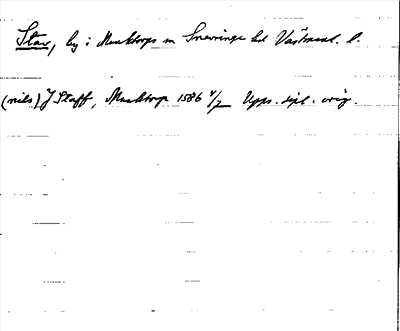 Stav, by i Munktorps sn Snevringe hd Västmanl. l.
(nils) J Staff, Munktorp 1586 4/7 Upps. dipl. orig.